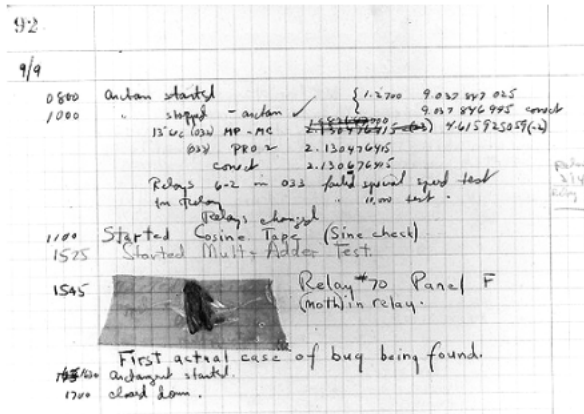 92
9/9
0800 antan started { 1.2700 9.037 847 025
1000 " stopped - antan ✓ 9.037 846 995 correct
13"uc (032) MP - MC 2.130476415 (-3) 4.615925059(-2)
(033) PRO 2 2.130476415
correct 2.130676415
Relays 6-2 in 033 failed special speed test
in relay " 10,000 test.
Relays changed
1100 Started Cosine Tape (Sine check)
1525 Started Mult+ Adder Test.
1545 Relay #70 Panel F
(moth) in relay.
First actual case of bug being found.
1630 antangent started.
1700 closed down.